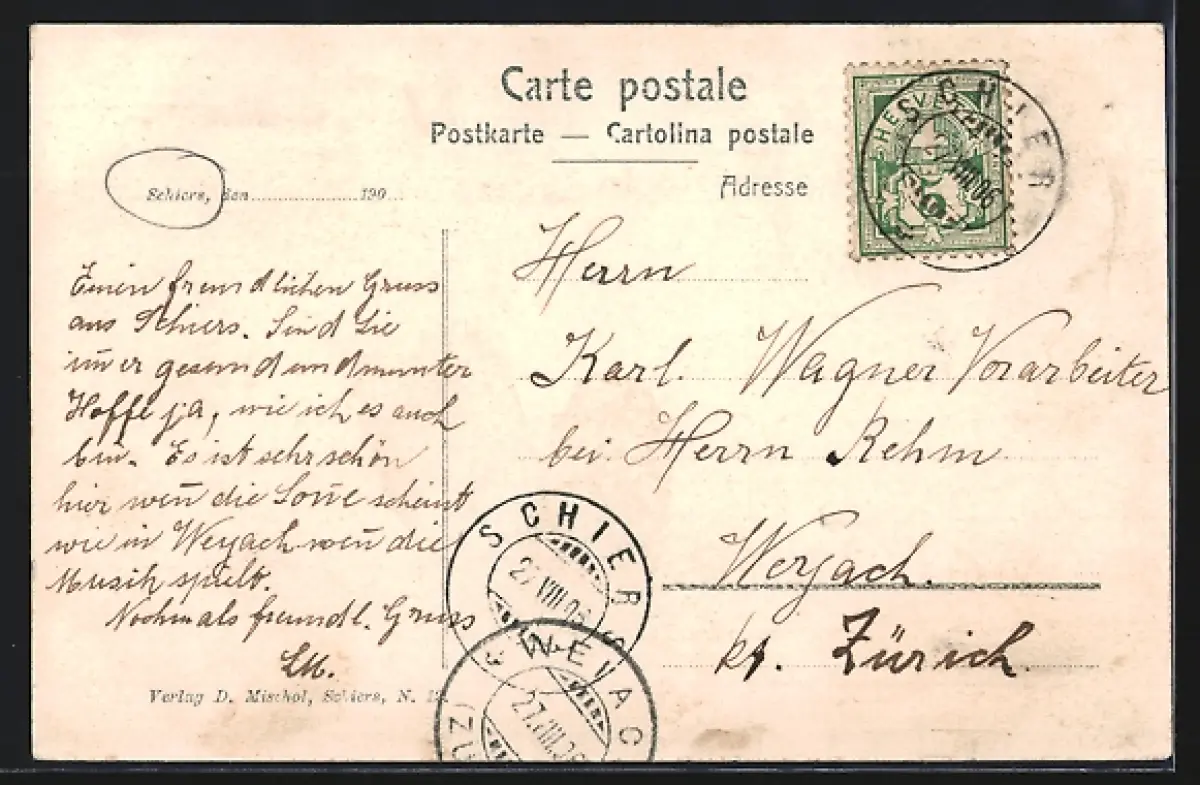 Carte postale
Postkarte — Cartolina postale
Adresse
Schiers, den 190
Einen freundlichen Gruss
aus Schiers. Sind Sie
im̄er gesund und munter
Hoffe ja, wie ich es auch
bin. Es ist sehr schön
hier wen̄ die Son̄e scheint
wie in Weyach wen̄ die
Musik spielt.
Nochmals freundl. Gruss
LM.
Verlag D. Mischol, Schiers, N.
Herrn
Karl. Wagner Vorarbeiter
bei Herrn Rehm
Weyach.
kt. Zürich.
SCHIERS
27.VIII.06
HELVETIA
SCHIERS
27.VIII.06
WEIAC
27.VIII.06